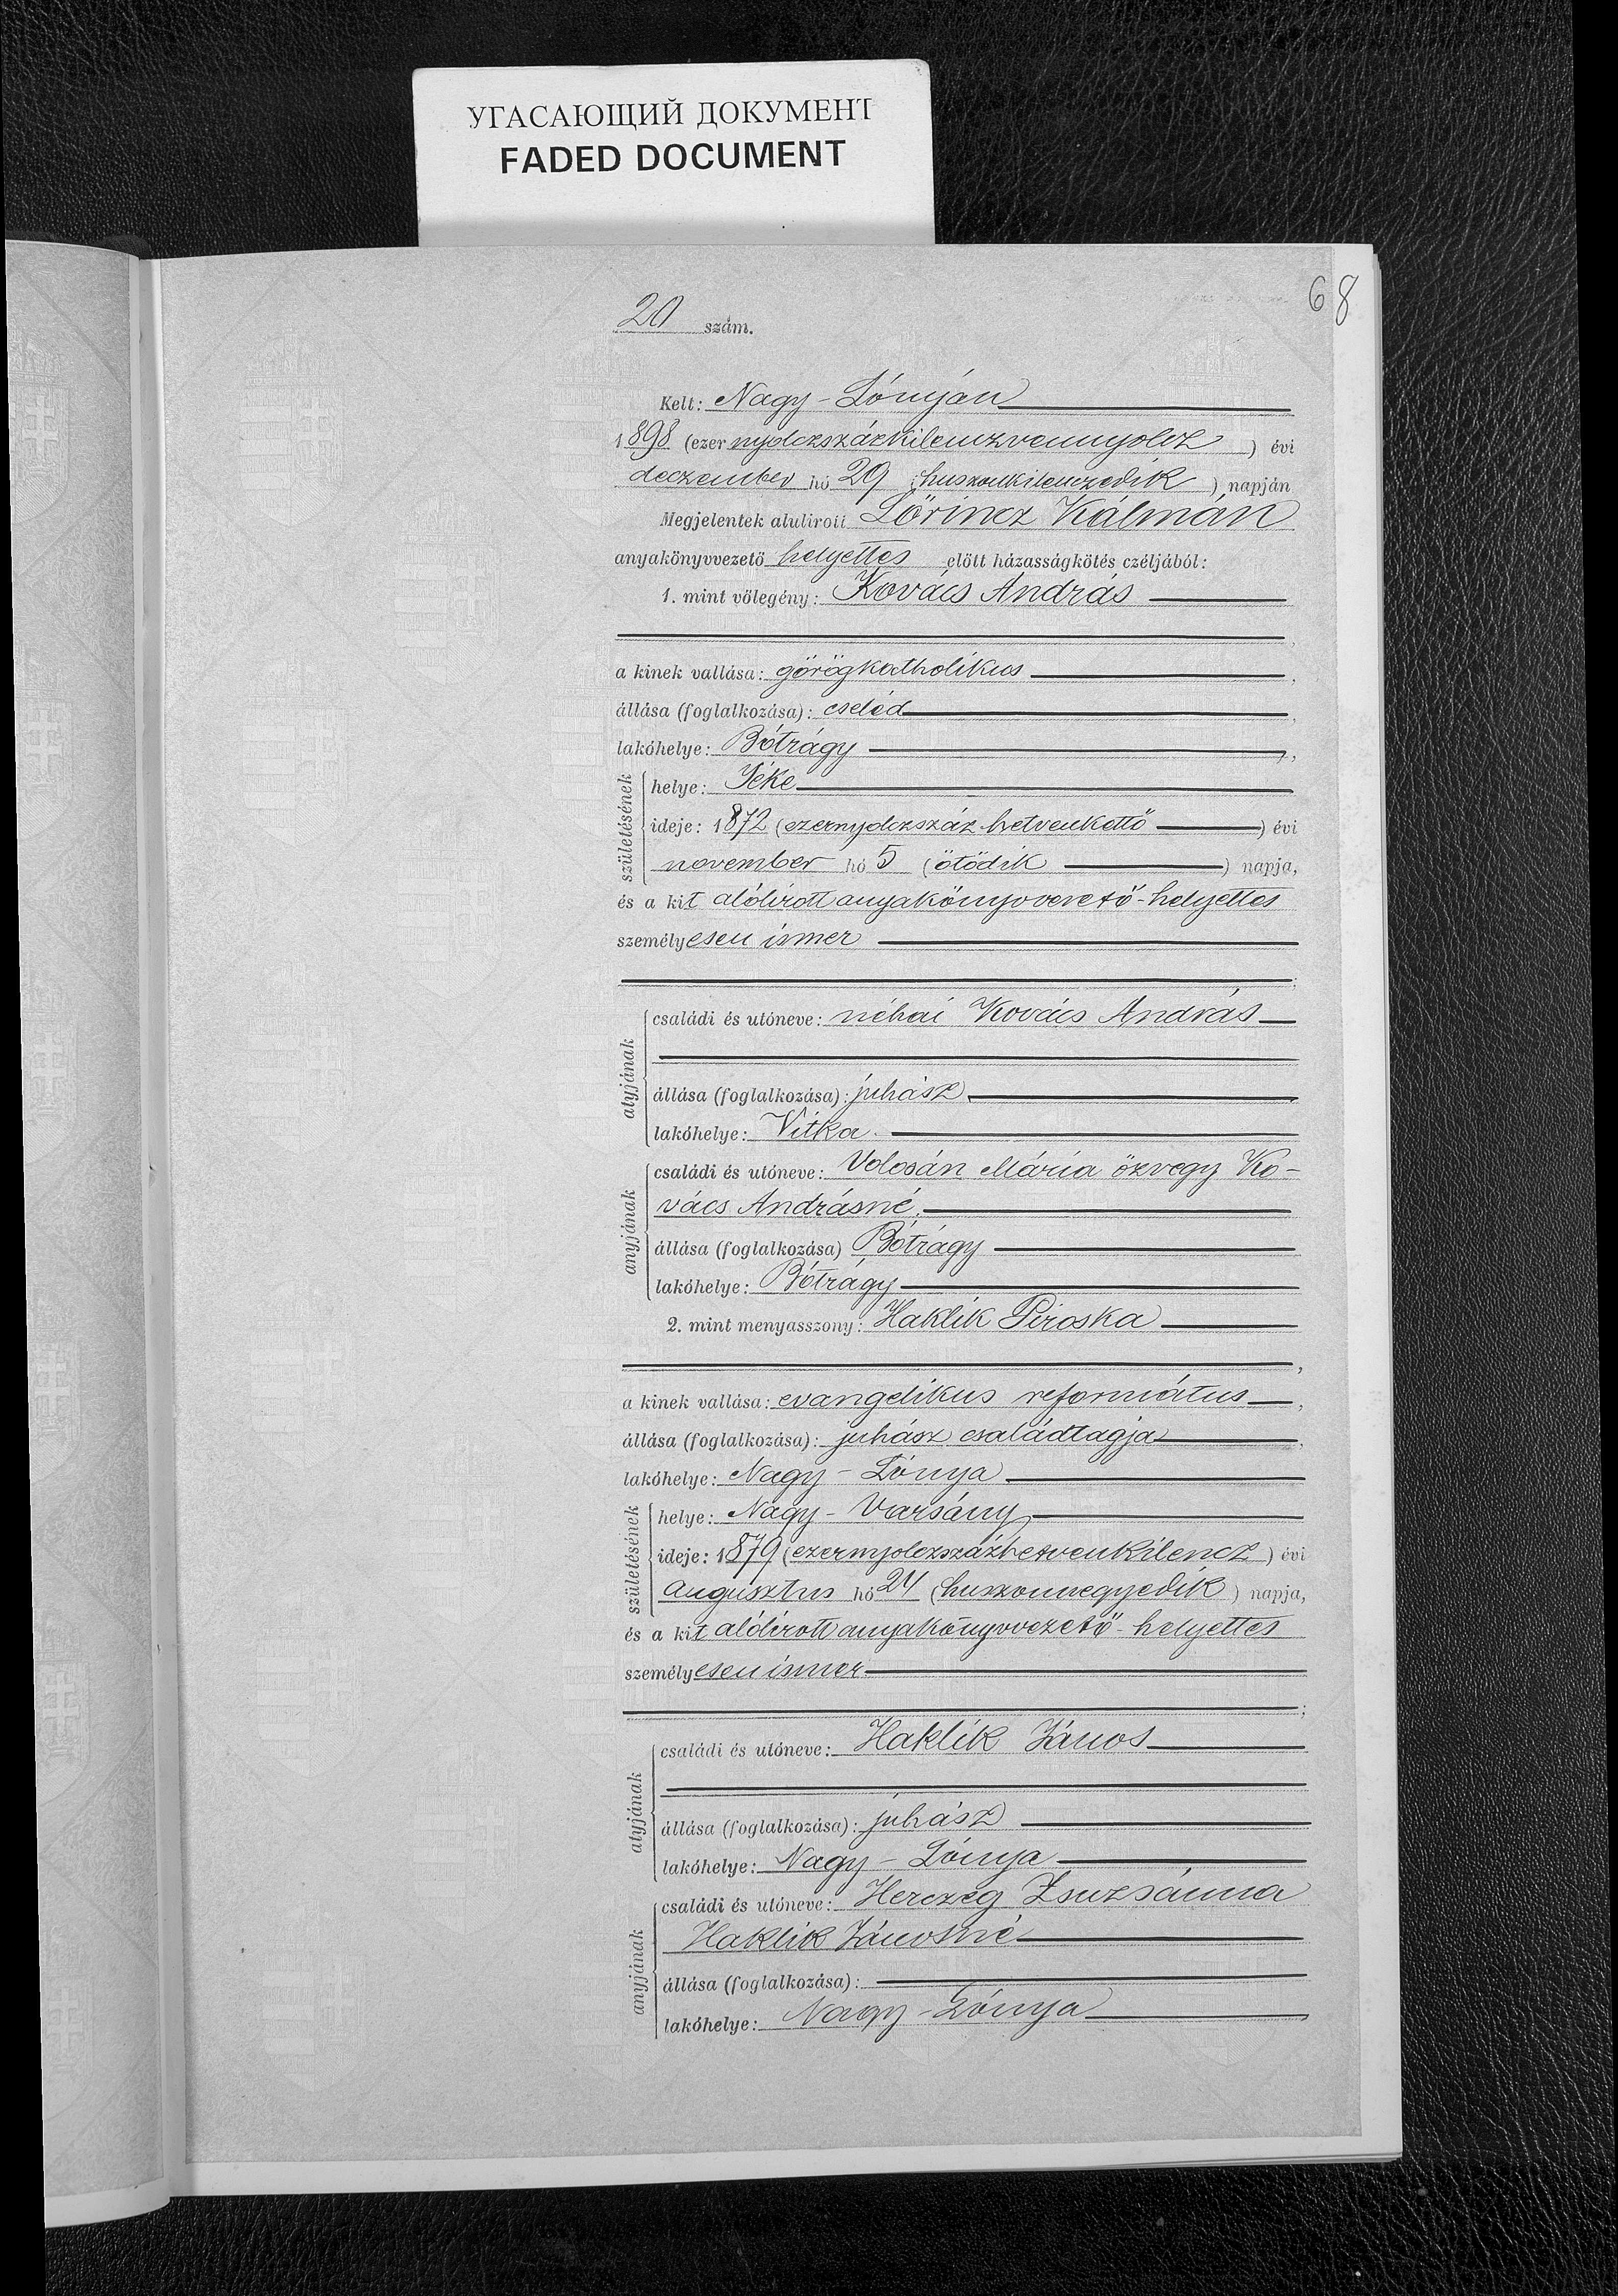 УГАСАЮЩИЙ ДОКУМЕНТ
FADED DOCUMENT
68
20 szám.
Kelt: Nagy-Lónyán
1898 (ezer nyolczszázkilenczvennyolcz) évi
deczember hó 29 (huszonkilenczedik) napján
Megjelentek alulirott Lőrincz Kálmán
anyakönyvvezető helyettes előtt házasságkötés czéljából:
1. mint vőlegény: Kovács András
a kinek vallása: görögkatholikus,
állása (foglalkozása): cseléd,
lakóhelye: Bótrágy,
születésének
helye: Jéke
ideje: 1872 (ezernyolczszáz hetvenkettő) évi
november hó 5 (ötödik) napja,
és a kit alólirott anyakönyvvezető-helyettes
személyesen ismer
;
atyjának
családi és utóneve: néhai Kovács András
állása (foglalkozása): juhász
lakóhelye: Vitka
anyjának
családi és utóneve: Volosán Mária özvegy Ko-
vács Andrásné.
állása (foglalkozása) Bótrágy
lakóhelye: Bótrágy
2. mint menyasszony: Haklik Piroska
,
a kinek vallása: evangelikus református,
állása (foglalkozása): juhász családtagja,
lakóhelye: Nagy-Lónya
születésének
helye: Nagy-Varsány
ideje: 1879 (ezernyolczszázhetvenkilencz) évi
augusztus hó 24 (huszonnegyedik) napja,
és a kit alólirott anyakönyvvezető-helyettes
személyesen ismer
;
atyjának
családi és utóneve: Haklik János
állása (foglalkozása): juhász
lakóhelye: Nagy-Lónya
anyjának
családi és utóneve: Herczeg Zsuzsánna
Haklik Jánosné
állása (foglalkozása):
lakóhelye: Nagy-Lónya